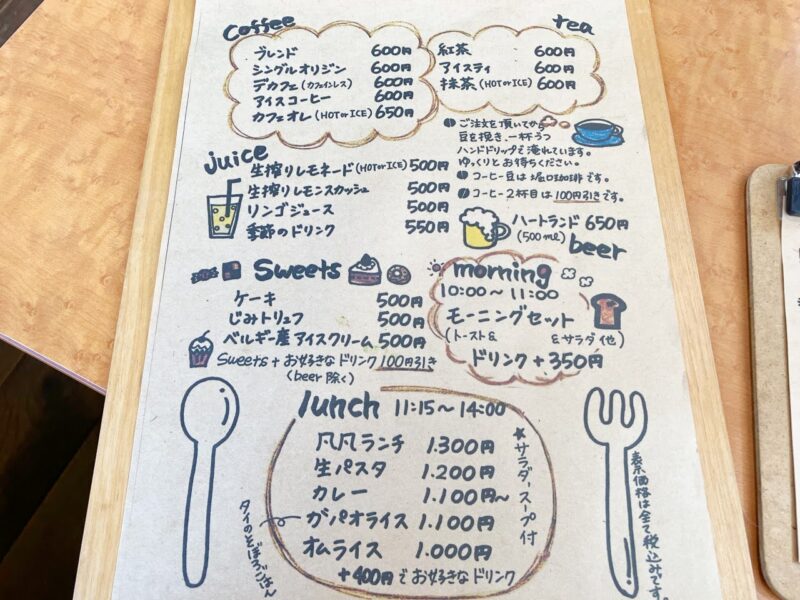 Coffee
ブレンド 600円
シングルオリジン 600円
デカフェ(カフェインレス) 600円
アイスコーヒー 600円
カフェオレ(HOT or ICE) 650円
tea
紅茶 600円
アイスティ 600円
抹茶(HOT or ICE) 600円
ご注文を頂いてから
豆を挽き、一杯ずつ
ハンドドリップで淹れています。
ゆっくりとお待ちください。
コーヒー豆は堀口珈琲です。
コーヒー2杯目は100円引きです。
juice
生搾りレモネード(HOT or ICE) 500円
生搾りレモンスカッシュ 500円
リンゴジュース 500円
季節のドリンク 550円
ハートランド 650円
(500ml) beer
Sweets
ケーキ 500円
じみトリュフ 500円
ベルギー産アイスクリーム 500円
Sweets+お好きなドリンク100円引き
(beer除く)
morning
10:00〜11:00
モーニングセット
(トースト& &サラダ他)
ドリンク+350円
lunch 11:15〜14:00
凡凡ランチ 1.300円
生パスタ 1.200円
カレー 1.100円〜
ガパオライス 1.100円
オムライス 1.000円
+400円でお好きなドリンク
★サラダ・スープ付
タイのそぼろごはん
表示価格は全て税込みです。